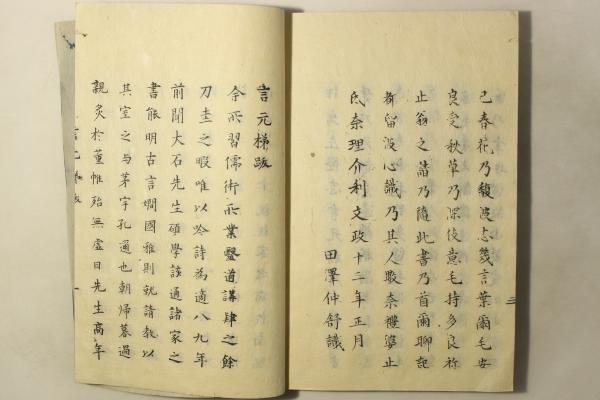 己春花乃馥波志幾言葉爾毛安
良受秋草乃深伎意毛持多良祢
止翁之請乃隨此書乃首爾聊記
都留波心識乃其人歌奈禮婆止
氏奈理介利文政十二年正月
田澤仲舒識
三
言元梯跋
余所習儒術所業醫道講肆之餘
刀圭之暇唯以吟詩為適八九年
前聞大石先生碩學該通諸家之
書能明古言嫺國雅則就請教以
其室之与茅宇孔通也朝帰暮過
親炙於董帷殆無虛日先生高年
言元梯跋
一